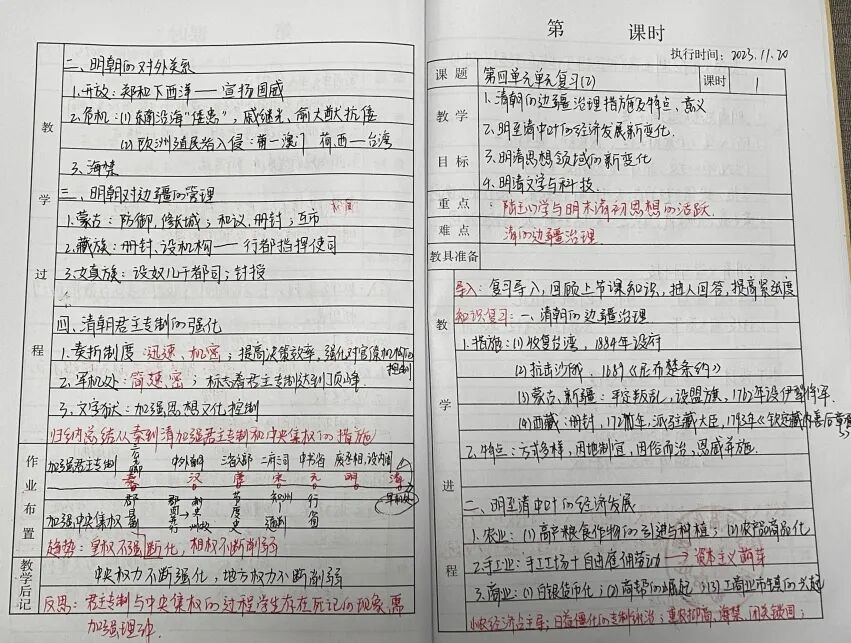 二、明朝的对外关系
1.开放：郑和下西洋——宣扬国威
2.危机：(1)东南沿海"倭患"，戚继光、俞大猷抗倭
(2)欧洲殖民者入侵：葡—澳门 荷、西—台湾
3.海禁
三、明朝对边疆的管理
1.蒙古：防御，修长城；和议、册封；互市
2.藏族：册封、设机构——行都指挥使司
3.女真族：设奴儿干都司；封授
四、清朝君主专制的强化
1.奏折制度：迅速、机密；提高决策效率，强化对官僚机构的控制
2.军机处：简、速、密；标志着君主专制达到顶峰.
3.文字狱：加强思想文化控制
归纳总结从秦到清加强君主专制和中央集权的措施
教学过程
作业布置
加强君主专制 三公九卿 中外朝 三省六部 二府三司 中书省 废丞相，设内阁
秦 汉 唐 宋 元 明 清
军机处
加强中央集权 郡县制 节度史 通判 行省
趋势：皇权不断强化，相权不断削弱
中央权力不断强化，地方权力不断削弱
教学后记
反思：君主专制与中央集权的过程学生存在死记的现象，需
加强理解.
第 课时
执行时间：2023.11.20
课题 第四单元单元复习(2) 课时 1
教学目标
1.清朝的边疆治理措施及特点、意义
2.明至清中叶的经济发展新变化.
3.明清思想领域的新变化
4.明清文学与科技.
重点 ：陆王心学与明末清初思想的活跃.
难点 清的边疆治理.
教具准备
教学进程
导入：复习导入，回顾上节课知识，抽人回答，提高紧张度
知识复习：一、清朝的边疆治理
1.措施：(1)收复台湾，1884年设府
(2)抗击沙俄，1689《尼布楚条约》
(3)蒙古、新疆：平定叛乱，设盟旗，1762年设伊犁将军.
(4)西藏：册封，1727年，派驻藏大臣，1793年《钦定藏内善后章程》
2.特点：方式多样，因地制宜，因俗而治，恩威并施.
二、明至清中叶的经济发展
1.农业：(1)高产粮食作物的引进与种植；(2)农产品商品化
2.手工业：手工工场+自由雇佣劳动→资本主义萌芽
3.商业：(1)白银货币化；(2)商帮的崛起；(3)工商业市镇的兴起
小农经济占主导；日益僵化的专制统治；重农抑商、海禁、闭关锁国；